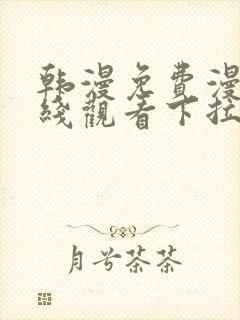 韩漫免費漫
綫觀看下拉
月兮茶茶